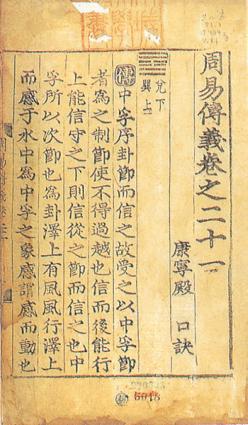 周易傳義卷之二十一
康寧殿 口訣
兌下
巽上
傳 中孚序卦節而信之故受之以中孚節
者為之制節使不得過越也信而後能行
上能信守之下則信從之節而信之也中
孚所以次節也為卦澤上有風風行澤上
而感于水中為中孚之象感謂感而動也